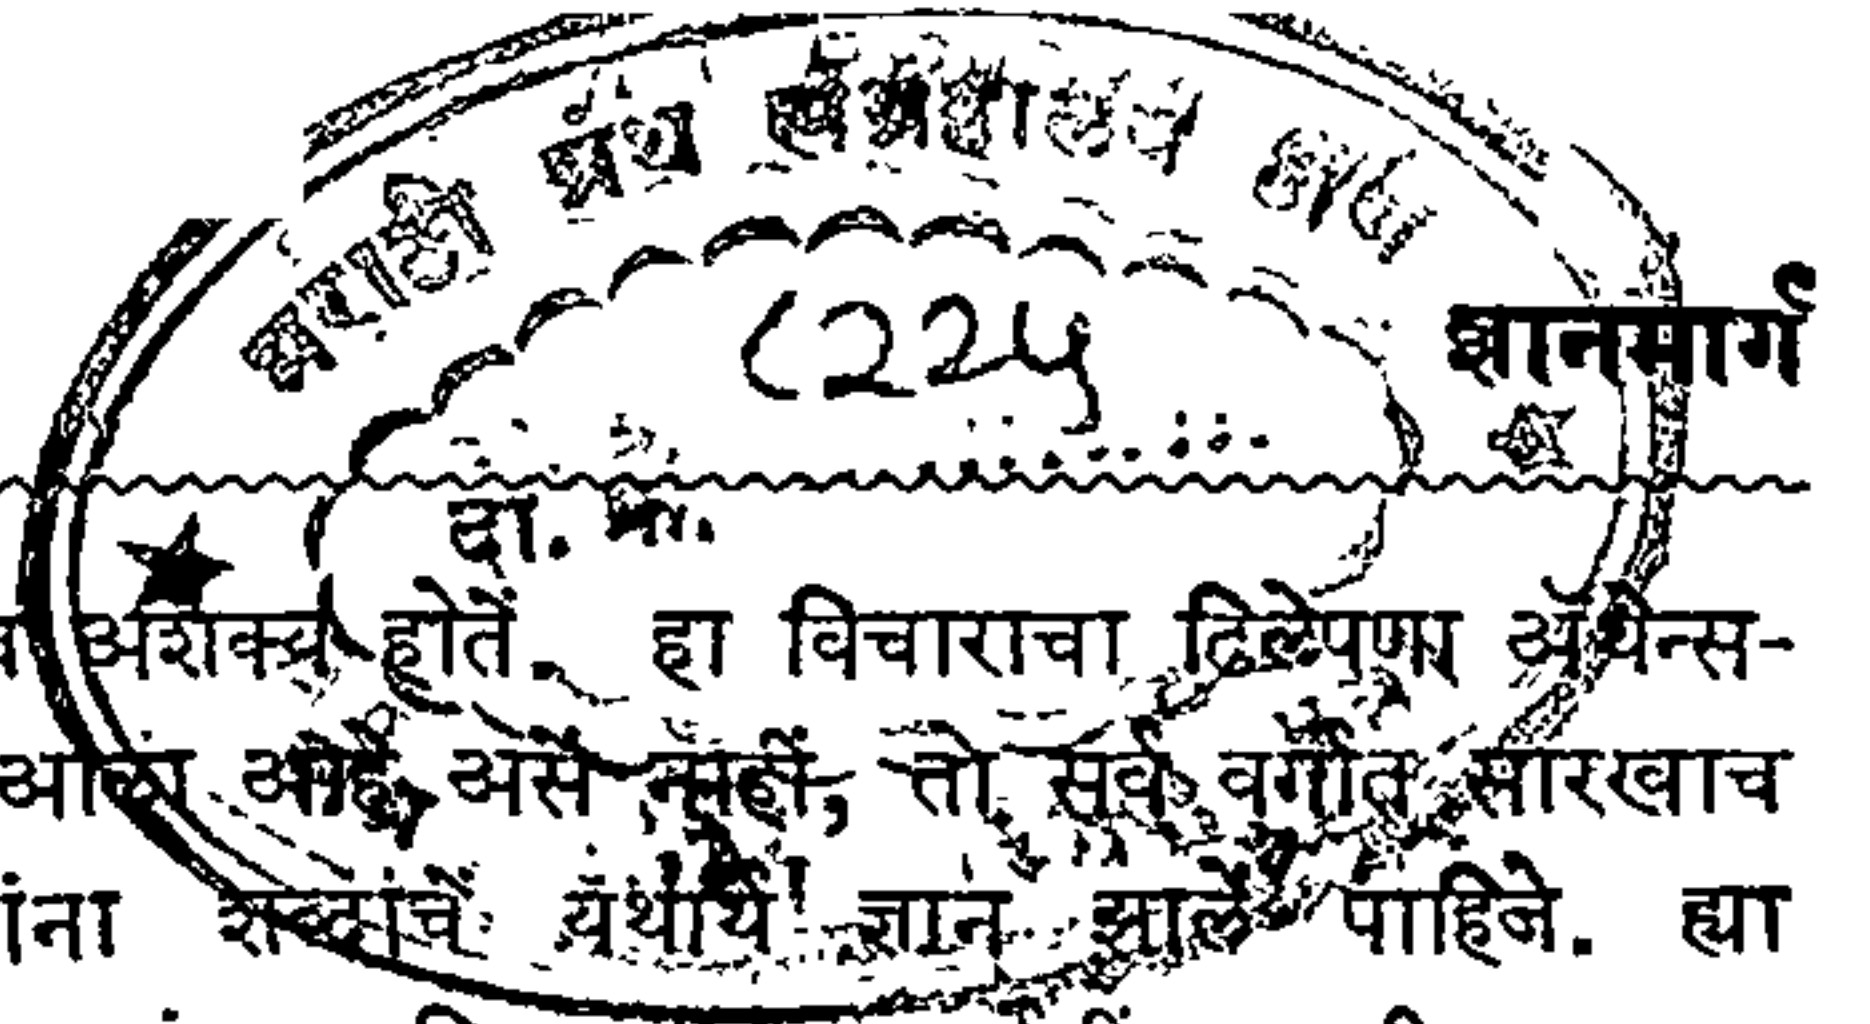 मराठी ग्रंथ संग्रहालय ठाणे
८२२५
ज्ञानमार्ग
दा. क्र.
अशक्य होतें. हा विचाराचा ढिलेपणा अ‍ॅथेन्स-
आला आहे असें नाहीं, तो सर्व वर्गांत सारखाच
ांना शब्दांचें यथार्थ ज्ञान झालें पाहिजे. ह्या